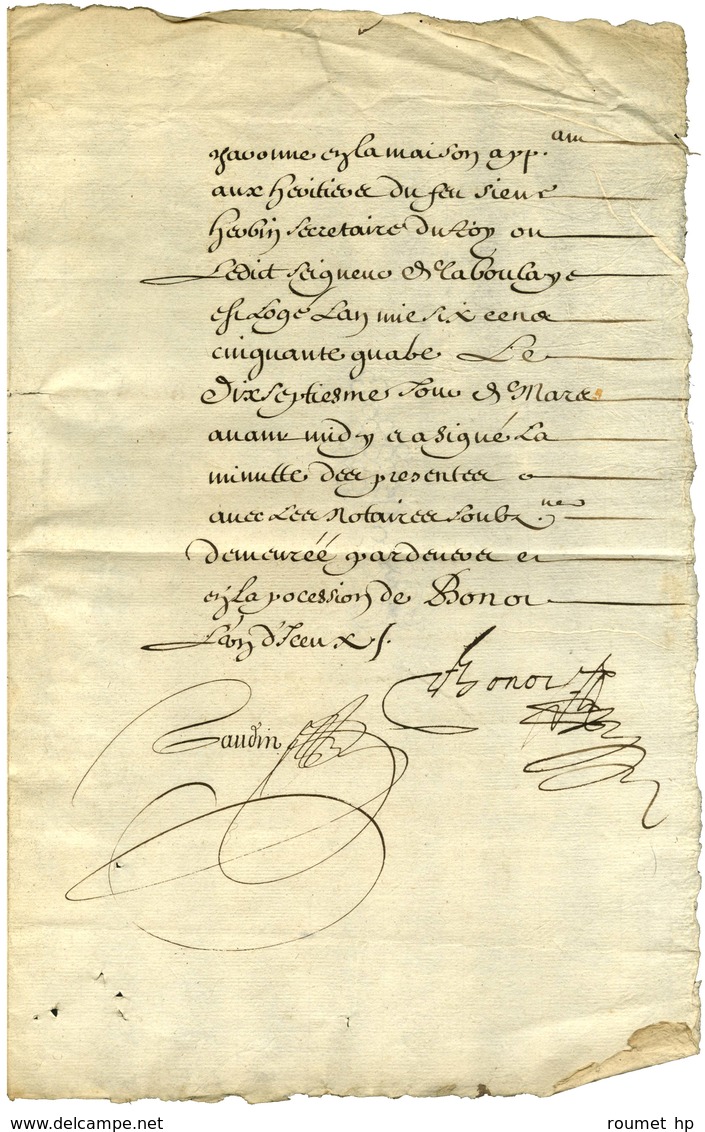 en la maison app.ant
aux heritiers du feu sieur
herbin secretaire du Roy ou
Ledict seigneur de la boulaye
est Logé Lan mil six cens
cinquante quatre Le
Dixseptiesme Jour de Mars
auant midy et a signé La
minutte des presentes
auec Les Notaires soubz.nez
demeuréé pardeuers et
en la pocession de Bonot
L'vn d'Iceux /.
Bonot
Gaudin
www.delcampe.net
roumet hp